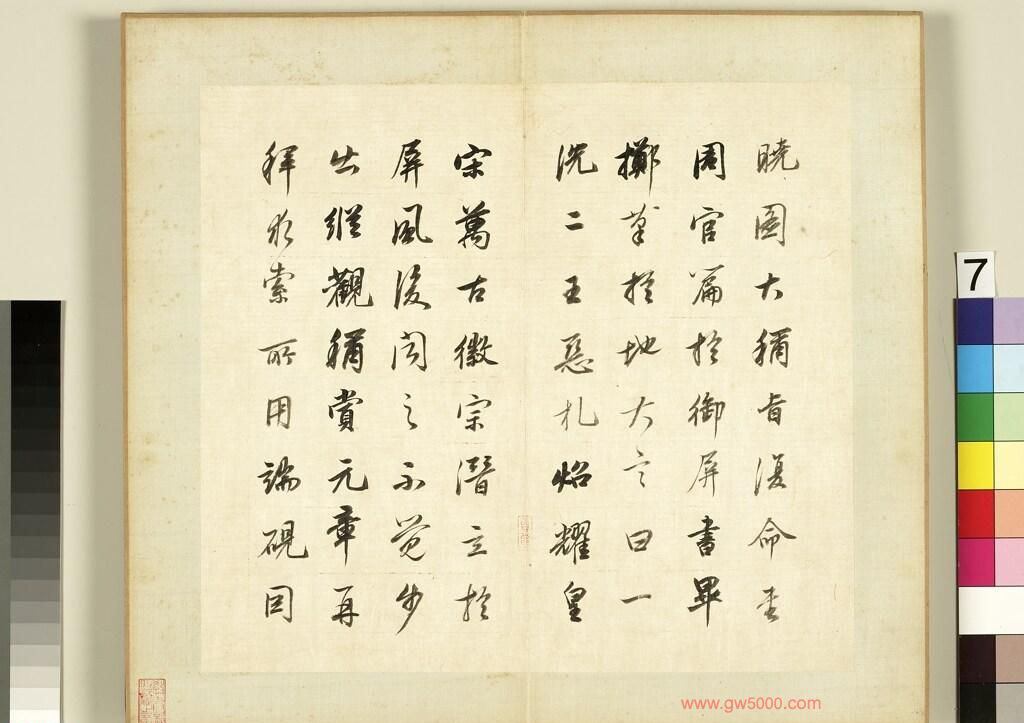 曉圖大稱旨復命書
周官篇於御屏書畢
擲筆於地大言曰一
洗二王惡札焰耀皇
宋萬古徽宗潛立於
屏風後聞之不覺步
出縱觀稱賞元章再
拜求索所用端硯因
7
www.gw5000.com